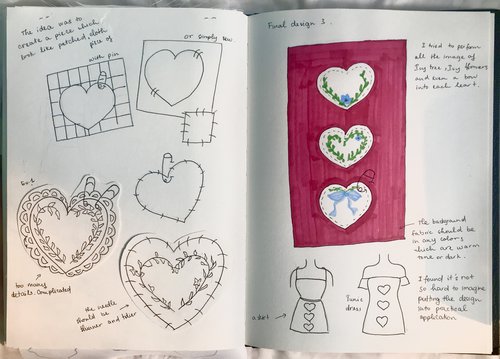 The idea was to
create a piece which
look like patched cloth
piece of
with pin
or simply sew.
Ex.1
too many
details. Complicated
the needle
should be
thinner and
Final design 3.
I tried to perform
all the image of
Ivy tree, Ivy flowers
and even a bow
into each heart.
The background
fabric should be
in any colors
which are warm
tone or dark.
I found it's not
so hard to imagine
putting the design
into practical
application
a skirt
Tunic
dress